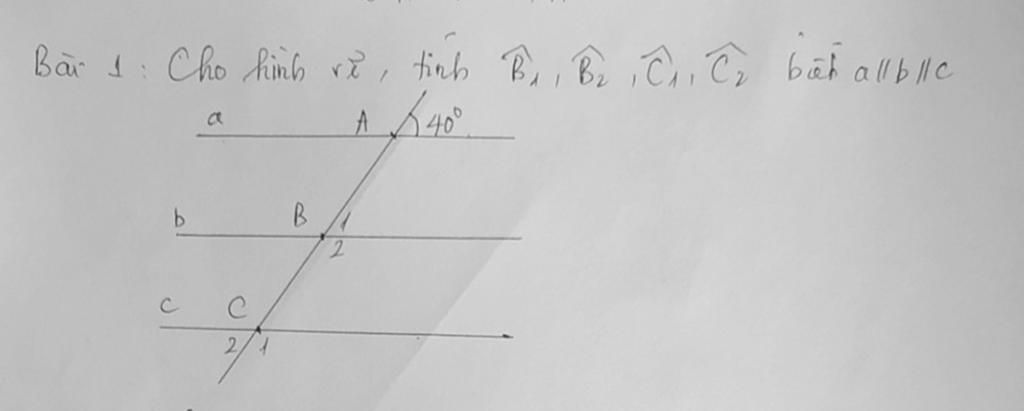 Bài 1: Cho hình vẽ, tính B̂1, B̂2, Ĉ1, Ĉ2 biết a//b//c
a A 40°
b B 1
2
c C
2 1